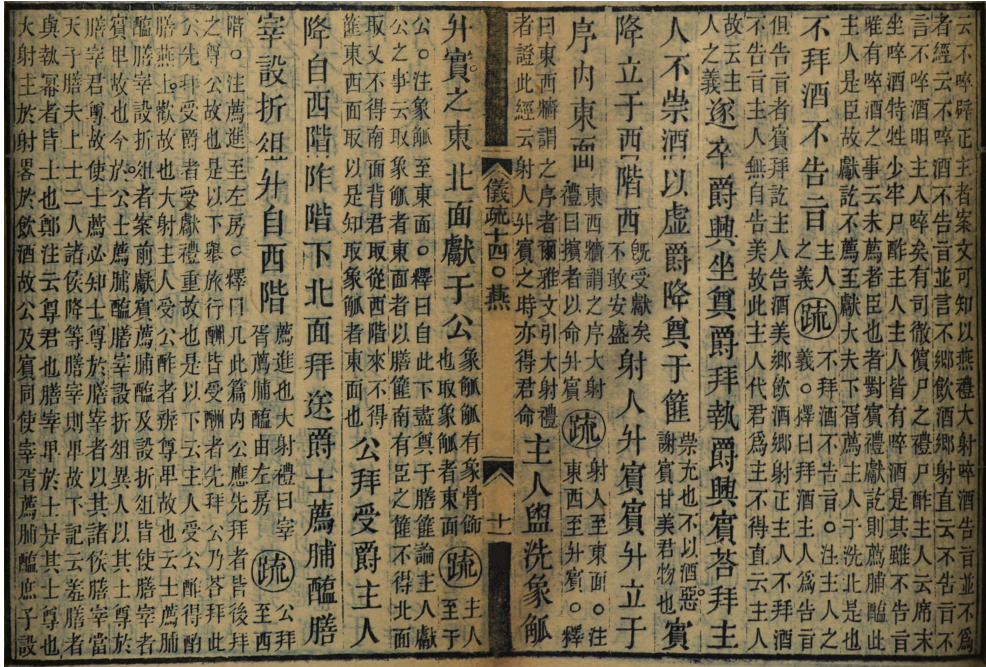 云不啐辟正主者案文可知以燕禮大射啐酒告旨並不為
者經云不啐酒不告旨並言不鄉飲酒鄉射直云不告旨不
言不啐酒明主人啐矣有司徹儐尸之禮尸酢主人云席末
坐啐酒特牲少牢尸酢主人主人皆有啐酒是其雖不告旨
唯有啐酒之事云未薦者臣也者對賓禮獻訖則薦脯醢此
主人是臣故獻訖不薦至獻大夫下胥薦主人于洗北是也
不拜酒不告旨主人之義疏不拜酒不告旨。注主人之義。釋曰拜酒主人為告旨
但告旨者賓拜訖主人告酒美鄉飲酒鄉射正主人不拜酒
不告旨主人無自告美故此主人代君為主不得直云主人
故云主人之義遂卒爵興坐奠爵拜執爵興賓荅拜主
人不崇酒以虛爵降奠于篚崇充也不以酒惡。謝賓甘美君物也賓
降立于西階西旣受獻矣不敢安盛射人升賓賓升立于
序內東面東西牆謂之序大射禮曰擯者以命升賓疏射人至東面。注東西至升賓。釋
曰東西牆謂之序者爾雅文引大射禮者證此經云射人升賓之時亦得君命主人盥洗象觚
儀疏十四。燕 十
升實之東北面獻于公象觚觚有象骨飾也取象觚者東面疏主人至于
公。注象觚至東面。釋曰自此下盡奠于膳篚論主人獻
公之事云取象觚者東面者以膳篚南有臣之篚不得北面
取又不得南面背君取從西階來不得篚東西面取以是知取象觚者東面也公拜受爵主人
降自西階阼階下北面拜送爵士薦脯醢膳
宰設折俎升自西階薦進也大射禮曰宰胥薦脯醢由左房疏公拜至西
階。注薦進至左房。釋曰凡此篇內公應先拜者皆後拜
之尊公故也是以下舉旅行酬皆受酬者先拜公乃荅拜此
公先拜受爵者受獻禮重故也是以下云主人受公酢得酌
膳燕上歡故也大射主人受公酢者辨尊卑故也云士薦脯
醢膳宰設折俎者案前獻賓薦脯醢及設折俎皆使膳宰者
賓卑故也今於公士薦脯醢膳宰設折俎異人以其士尊於
膳宰君尊故使士薦必知士尊於膳宰者以其諸侯膳宰當
天子膳夫上士二人諸侯降等膳宰則卑故下記云羞膳者
與執冪者皆士也鄭注云尊君也膳宰卑於士是其士尊也
大射主於射畧於飲酒故公及賓同使宰胥薦脯醢庶子設